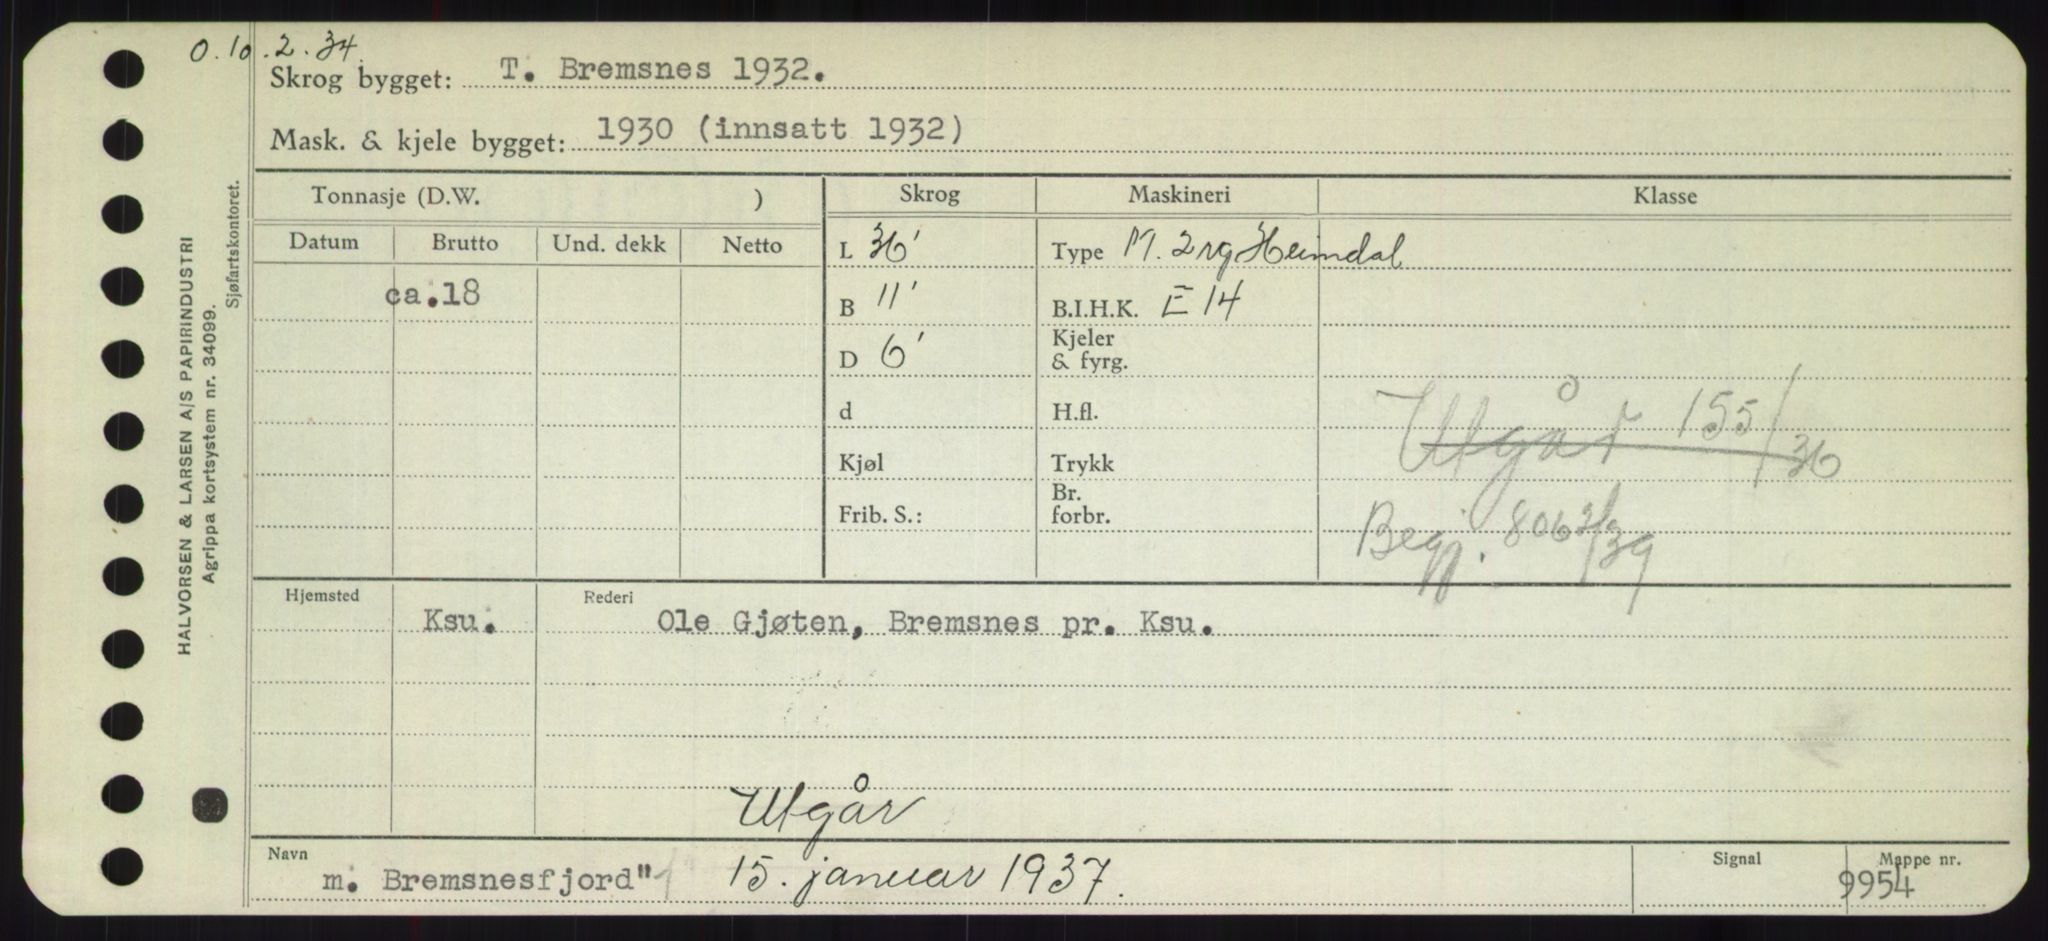 O. 10.2.34.
Skrog bygget: T. Bremsnes 1932.
Mask. & kjele bygget: 1930 (innsatt 1932)
Tonnasje (D.W. ) Skrog Maskineri Klasse
Datum Brutto Und. dekk Netto
L 36' Type M. 2 Heimdal
ca.18
B 11' B.I.H.K. E 14
D 6' Kjeler & fyrg.
d H.fl.
Utgår 155/36
Kjøl Trykk
Frib. S.: Br. forbr.
Begj. 8062/39
Hjemsted Rederi
Ksu. Ole Gjøten, Bremsnes pr. Ksu.
Utgår
Navn Signal Mappe nr.
m. Bremsnesfjord" 15. januar 1937. 9954
HALVORSEN & LARSEN A/S PAPIRINDUSTRI
Agrippa kortsystem nr. 34099.
Sjøfartskontoret.